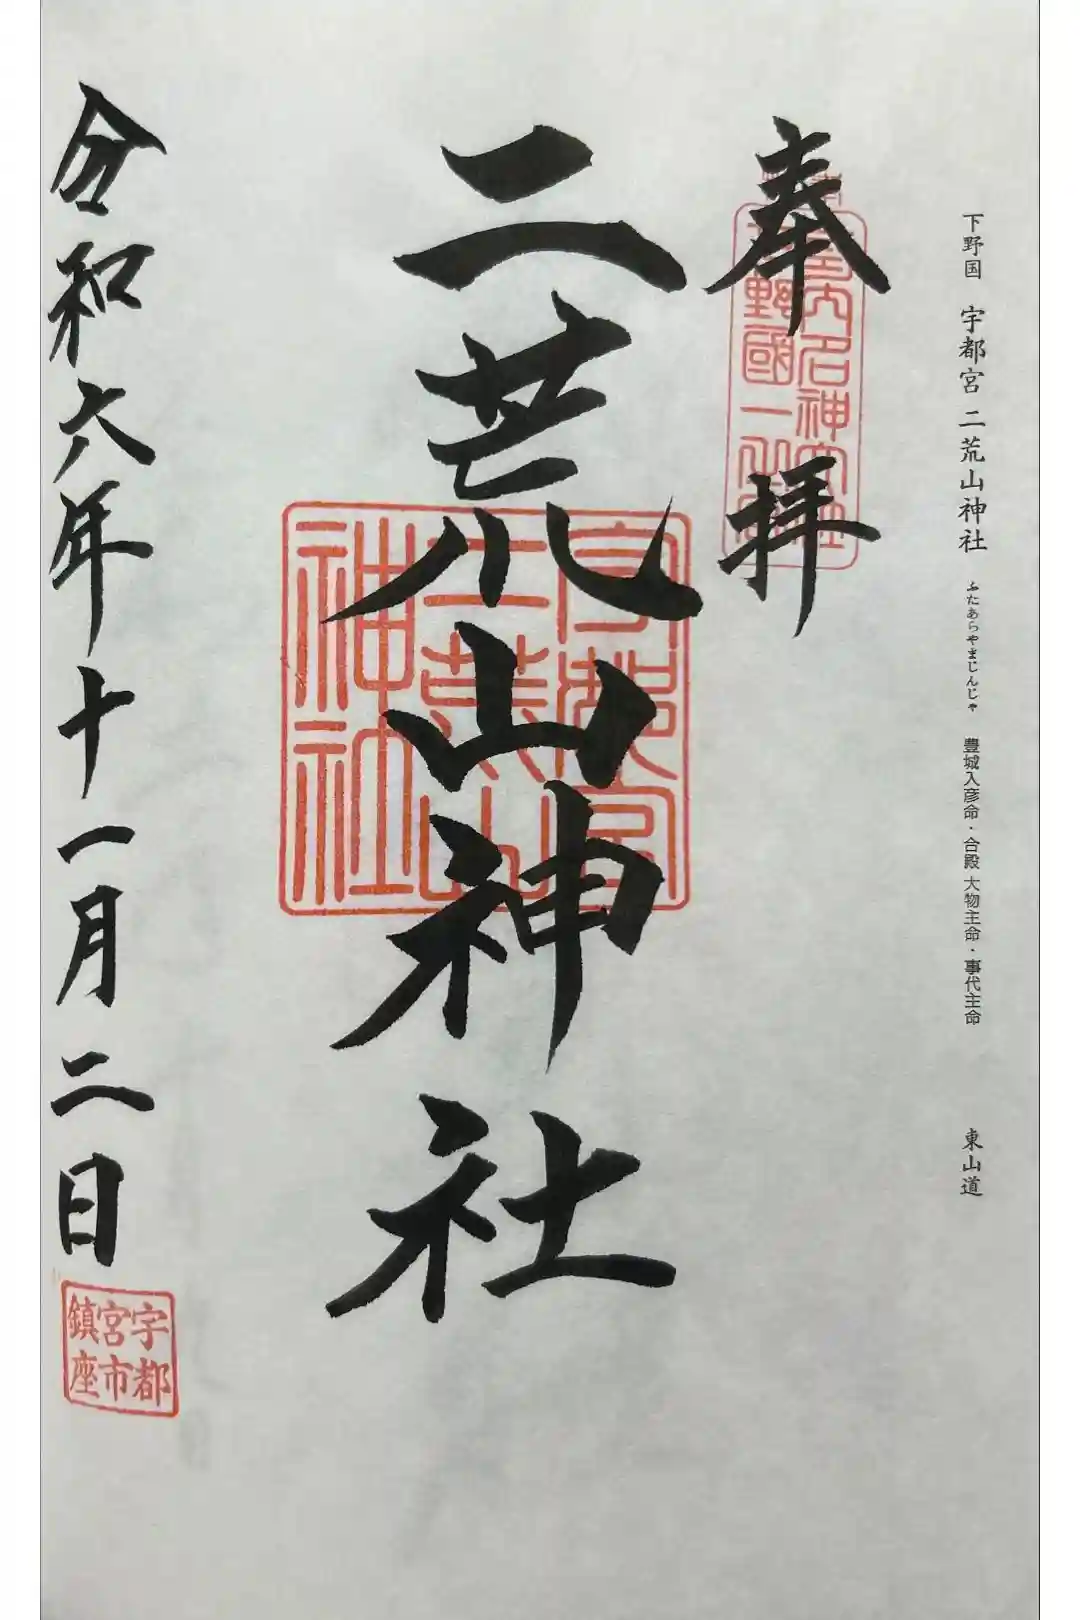 下野国 宇都宮 二荒山神社 ふたあらやまじんじゃ 豊城入彦命・合殿 大物主命・事代主命 東山道
奉拝
名神大社
下野國一
二荒山神社
宇都宮
二荒山
神社
令和六年十一月二日
宇都
宮市
鎮座